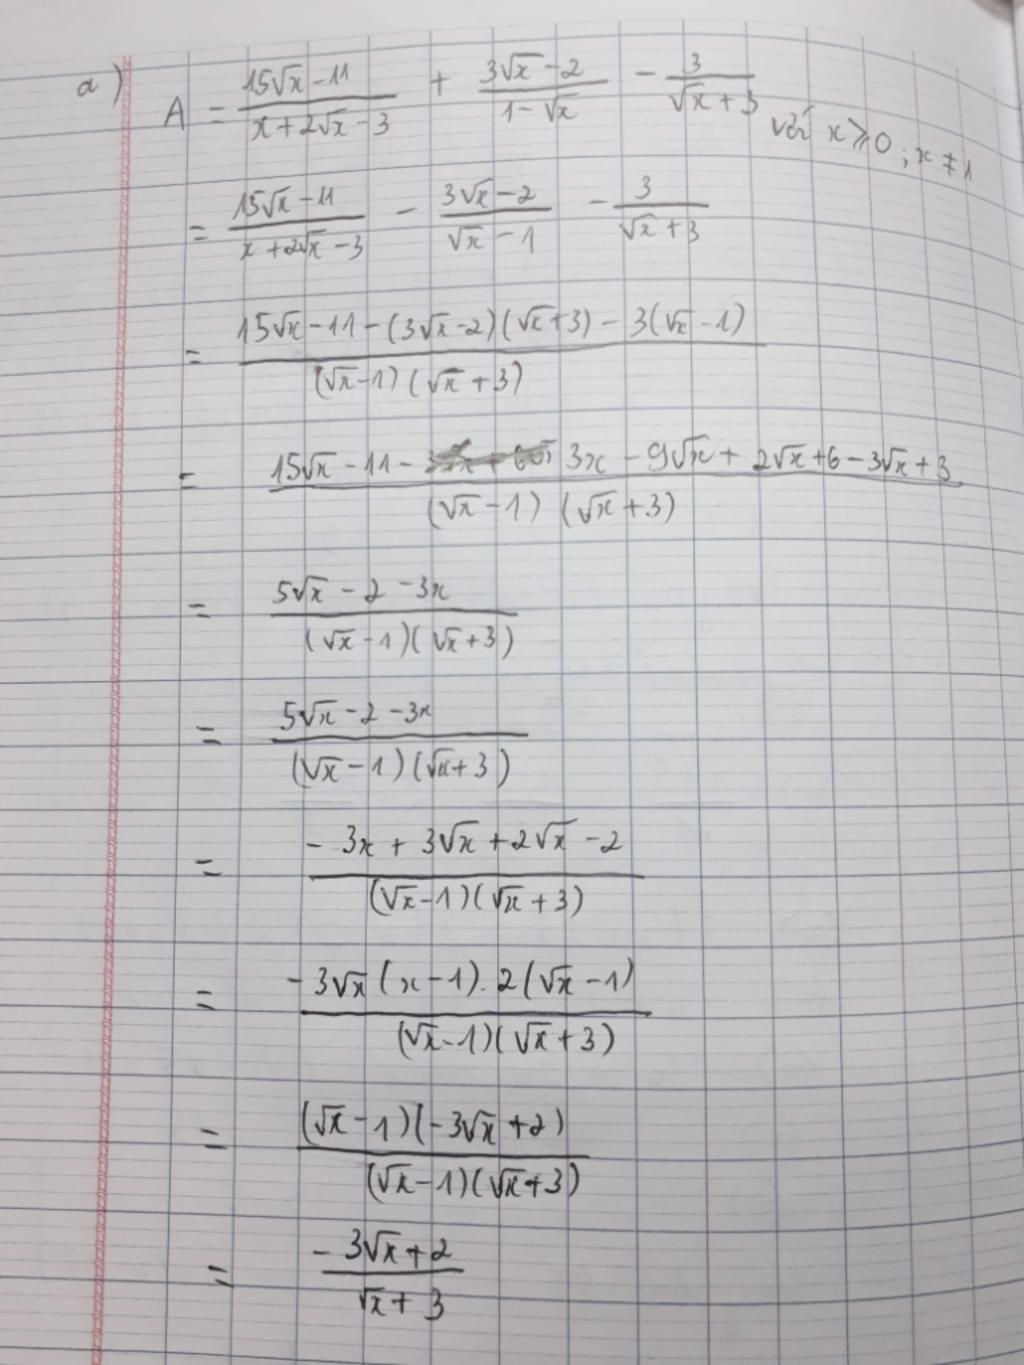 a) A = (15√x - 11)/(x + 2√x - 3) + (3√x - 2)/(1 - √x) - 3/(√x + 3) với x ⩾ 0 ; x ≠ 1
= (15√x - 11)/(x + 2√x - 3) - (3√x - 2)/(√x - 1) - 3/(√x + 3)
= (15√x - 11 - (3√x - 2)(√x + 3) - 3(√x - 1))/((√x - 1)(√x + 3))
= (15√x - 11 - 3x - 9√x + 2√x + 6 - 3√x + 3)/((√x - 1)(√x + 3))
= (5√x - 2 - 3x)/((√x - 1)(√x + 3))
= (5√x - 2 - 3x)/((√x - 1)(√x + 3))
= (-3x + 3√x + 2√x - 2)/((√x - 1)(√x + 3))
= (-3√x(x - 1).2(√x - 1))/((√x - 1)(√x + 3))
= ((√x - 1)(-3√x + 2))/((√x - 1)(√x + 3))
= (-3√x + 2)/(√x + 3)